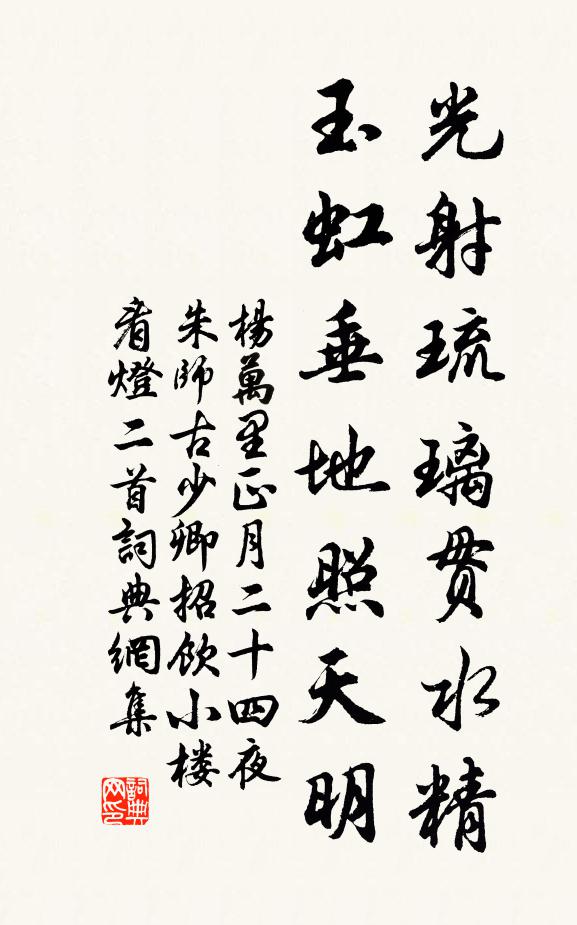 光射琉璃貫水精
玉虹垂地照天明
楊萬里正月二十四夜
朱師古少卿招飲小楼
看燈二首詞典網集
詞典
网印